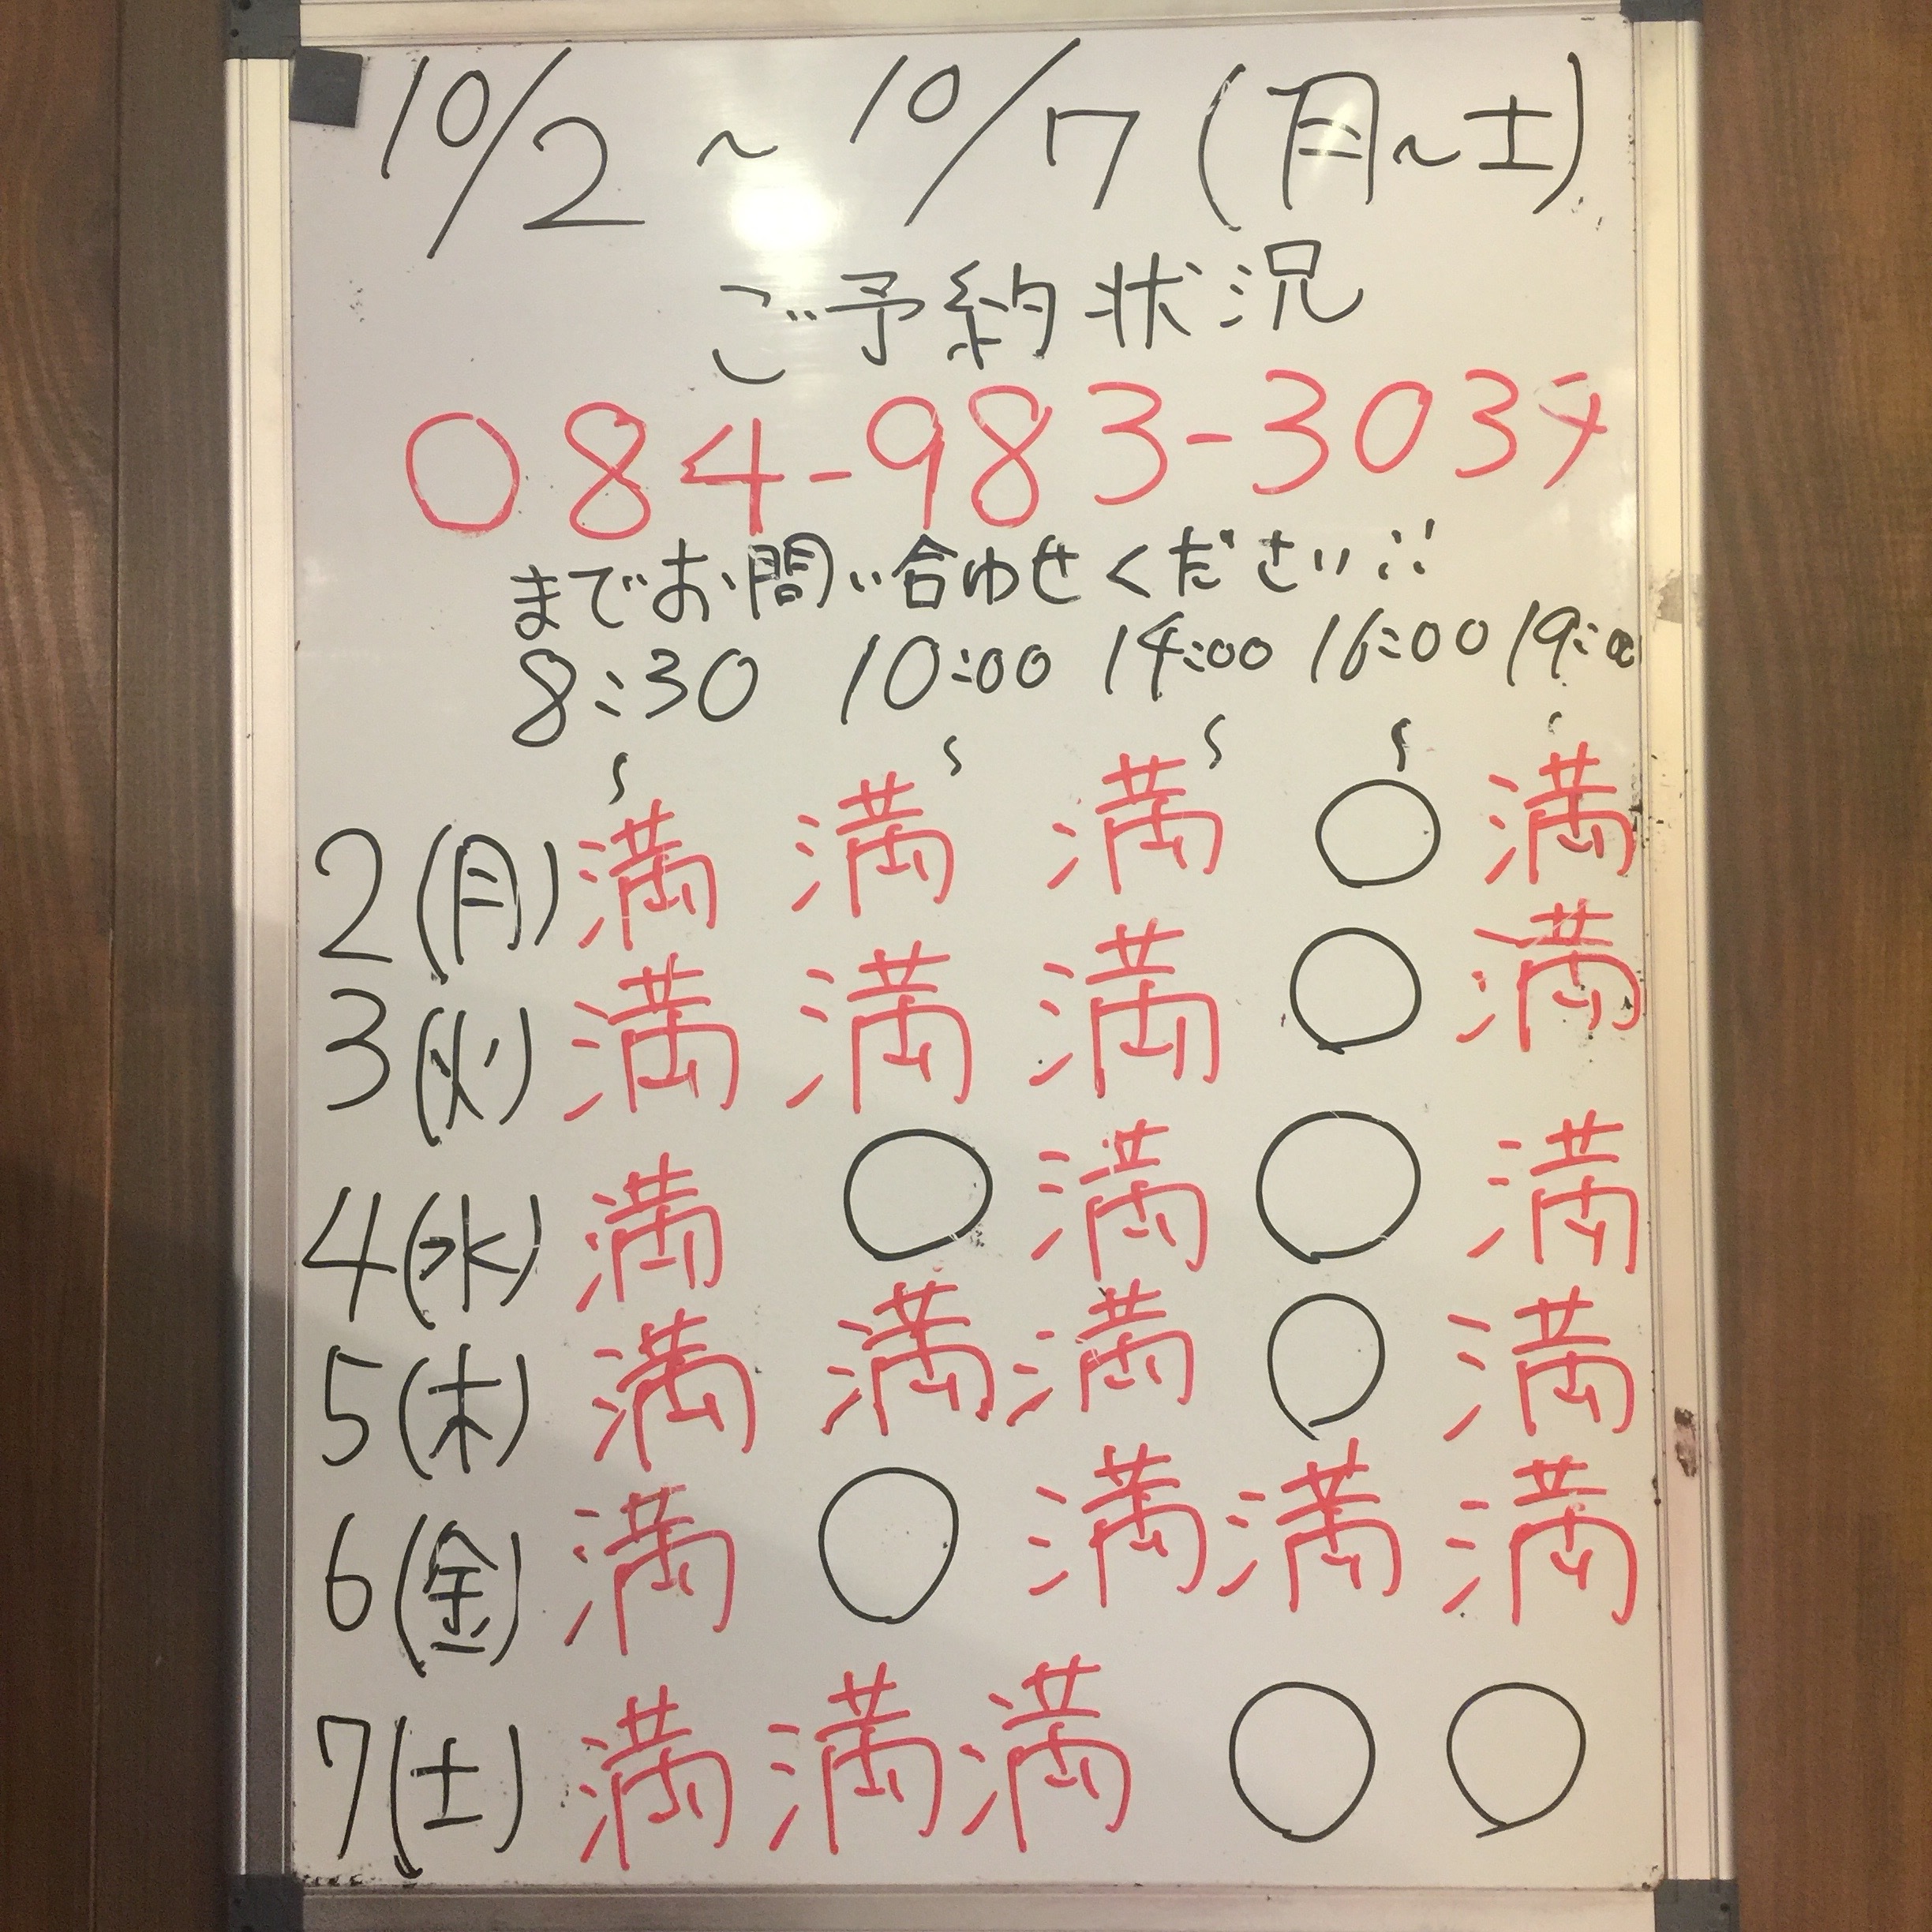 10/2 ~ 10/7 (月~土)
ご予約状況
084-983-3034
までお問い合わせください!!
8:30 10:00 14:00 16:00 19:00
~ ~ ~ ~ ~
2(月) 満 満 満 ○ 満
3(火) 満 満 満 ○ 満
4(水) 満 ○ 満 ○ 満
5(木) 満 満 満 ○ 満
6(金) 満 ○ 満 満 満
7(土) 満 満 満 ○ ○